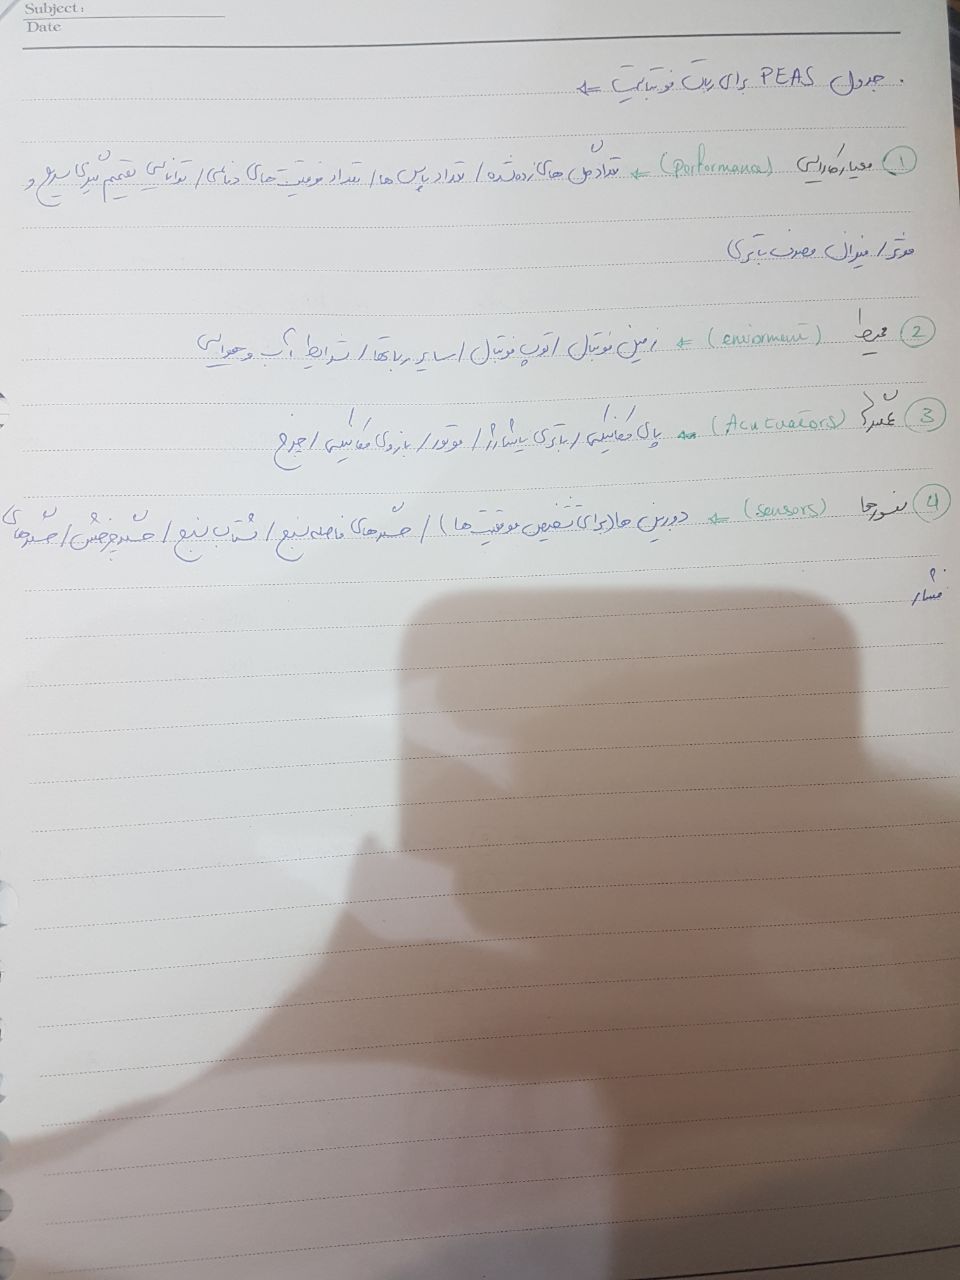 Subject:
Date
. جدول PEAS برای ربات فوتبالیست ⇐
① معیار کارایی (Performance) ⇐ تعداد گل های زده شده / تعداد پاس ها / تعداد موقعیت های دفاعی / توانایی تصمیم گیری سریع و
موثر / میزان مصرف باتری
② محیط (enviorment) ⇐ زمین فوتبال / توپ فوتبال / سایر رباتها / شرایط آب و هوایی
③ عملگر (Acutuators) ⇐ پای مکانیکی / باتری با شارژ / موتور / بازوی مکانیکی / چرخ
④ سنسورها (sensors) ⇐ دوربین ها (برای تشخیص موقعیت ها) / حسگرهای فاصله سنج / شتاب سنج / حسگر چرخش / حسگرهای
فشار